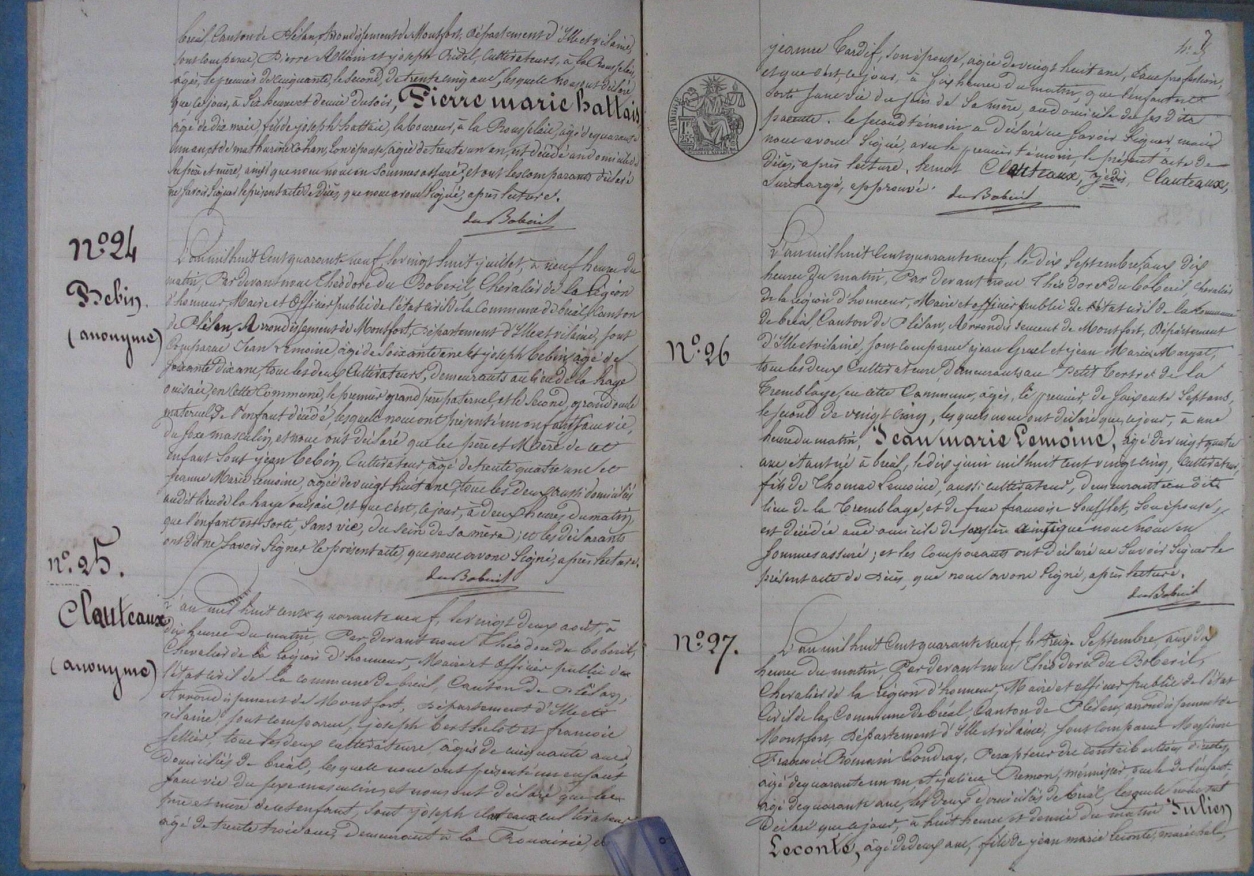 bréal, Canton de Plélan, arrondissement de Montfort, Département d'Illeetvilaine,
sont comparus, Pierre Allain et joseph Ridel, Cultivateurs, à la Rousselais,
âgés, le premier de cinquante, le second, de trente cinq ans, lesquels nous ont déclaré
que ce jour, à Six heures et demie du soir, Pierre marie hallais
âgé de dix mois, fils de joseph hallais, laboureur, à la Rousselais, âgé de quarante
un ans et de mathurine Cohan, son épouse, âgée de trente un ans, est décédé au domicile de
ses père et mère, ainsi que nous nous en Sommes assuré; et ont les comparants déclaré
ne Savoir Signer le présent acte de décès, que nous avons Signé, après lecture.
du Boberil
N° 24
Bebin.
(anonyme)
L'an mil huit Cent quarante neuf, le vingt huit juillet, à neuf heures du
matin, Par devant nous Théodore du Boberil, Chevalier de la Légion
d'honneur, Maire et Officier public de l'état civil de la Commune de bréal, Canton
de Plélan, Arrondissement de Montfort, Département d'Illeetvilaine, sont
Comparus Jean Lemoine, âgé de Soixante ans et joseph bebin, âgé de
Soixante dix ans, tous les deux Cultivateurs, demeurants au lieu de la haye
en cette Commune, le premier grand père paternel, et le Second, grand oncle
maternel, de l'enfant décédé, lesquels nous ont présenté un enfant Sans vie,
du Sexe masculin, et nous ont déclaré que les père et Mère de cet
enfant Sont jean bebin, Cultivateur, âgé de trente quatre ans et
jeanne Marie Lemoine, âgée de vingt huit ans, tous les deux aussi domiciliés
audit lieu de la haye et que c'est, ce jour, à deux heures du matin,
que l'enfant est Sorti, Sans vie, du Sein de Sa mère; et les déclarants
ont dit ne Savoir Signer le présent acte, que nous avons Signé, après lecture.
du Boberil
n° 25.
Clauteaux
(anonyme)
L'an mil huit cent quarante neuf, le vingt deux août, à
dix heures du matin, Par devant nous Théodore du Boberil,
Chevalier de la Légion d'honneur, Maire et Officier public de
l'état civil de la commune de bréal, Canton de Plélan,
Arrondissement de Montfort, Département d'Illeet
vilaine, sont comparus, joseph berthelot et francois
tous les deux cultivateurs, âgés de cinquante ans,
domiciliés de bréal, lesquels nous ont présenté un enfant
Sans vie du Sexe masculin, et nous ont déclaré que les
père et mère de cet enfant, Sont joseph clauteaux cultivateur
âgé de trente trois ans, demeurant à la Rouairie, et
jeanne Tardif, son épouse, agée de vingt huit ans, Sans profession,
et que c'est, ce jour, à Six heures du matin, que l'enfant est
Sorti Sans vie du Sein de Sa mère, au domicile de Ses dits
parents. Le Second témoin a déclaré ne Savoir Signer mais
nous avons Signé, avec le premier témoin, le présent acte de
Décès, après lecture. Clauteaux, Clauteaux,
Surchargé, approuvé.
du Boberil
N° 26
L'an mil huit Cent quarante neuf, le dix Septembre, aux dix
heures du matin, Par devant nous Théodore du boberil Chevalier
de la Légion d'honneur, Maire et officier public de l'état civil de la Commune
de bréal, Canton de Plélan, Arrondissement de Montfort, Département
d'Illeetvilaine, sont comparus, jean Gruel et jean Marie Margat,
tous les deux Cultivateurs, demeurants au Petit Tertre et de la
Tremblaye, en cette Commune, âgés, le premier de Soixante Sept ans,
le Second de vingt Cinq, lesquels nous ont déclaré que ce jour, à une
heure du matin, Jean marie Lemoine, âgé de vingt quatre
ans et natif à bréal, le dix juin mil huit cent vingt cinq, Cultivateur,
fils de Thomas Lemoine, aussi cultivateur, demeurant au dit
lieu de la Tremblaye, et de feue francoise Soufflet, Son épouse,
est décédé au domicile de son père ainsi que nous nous en
Sommes assuré; et les Comparants ont déclaré ne Savoir Signer le
présent acte de Décès, que nous avons Signé, après lecture.
du Boberil
N° 27.
L'an mil huit Cent quarante neuf, le Septembre, aux dix
heures du matin, Par devant nous Théodore du Boberil,
Chevalier de la Légion d'honneur Maire et officier public de l'état
Civil de la Commune de bréal, Canton de Plélan, arrondissement de
Montfort, Département d'Illeetvilaine, sont comparus Messieurs
Francois Romain Percepteur des contributions directes,
âgé de quarante un ans et julien Ramon, oncle de l'enfant,
âgé de quarante ans, les deux domiciliés de bréal, lesquels nous ont
Déclaré que ce jour, à huit heures et demie du matin Julien
Leconte, âgé de deux ans, fils de jean marie leconte,